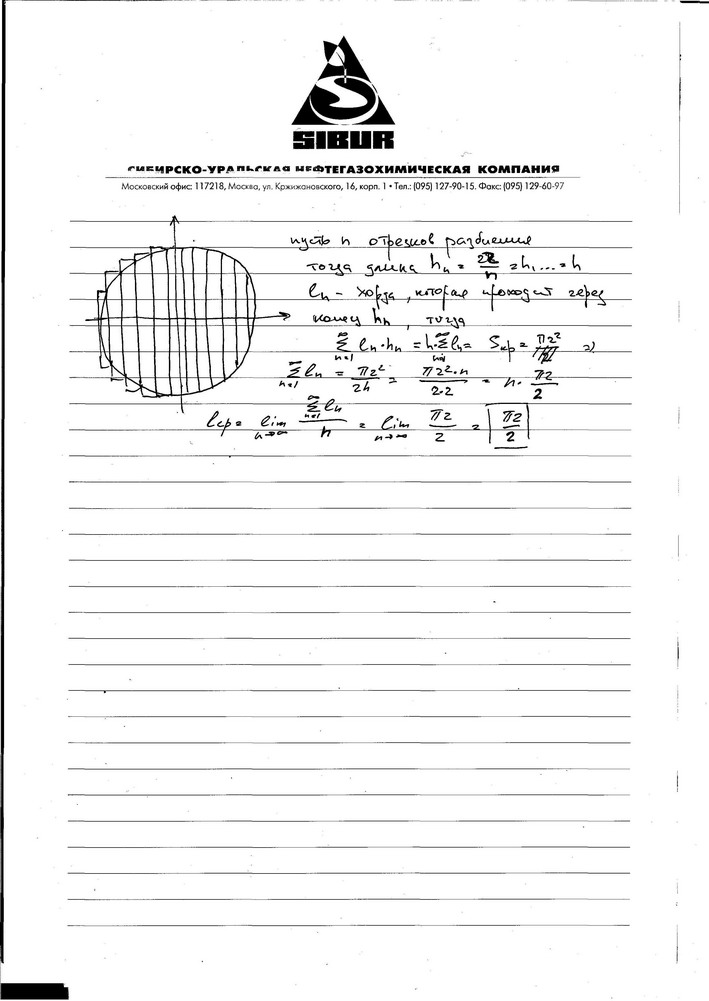 SIBUR
СИБИРСКО-УРАЛЬСКАЯ НЕФТЕГАЗОХИМИЧЕСКАЯ КОМПАНИЯ
Московский офис: 117218, Москва, ул. Кржижановского, 16, корп. 1 • Тел.: (095) 127-90-15. Факс: (095) 129-60-97
пусть n отрезков разбиения
тогда длина hₙ = 2r/n = h₁... = h
lₙ – хорда, которая проходит через
конец hₙ, тогда
∞Σn=1 lₙ·hₙ = h·∞Σn=1 lₙ = Sкр = πr² ⇒
Σn=1 lₙ = πr²/2h = πr²·n/2·2 = n·πr/2
lср = lim n→∞ ∞Σn=1 lₙ/n = lim n→∞ πr/2 = πr/2